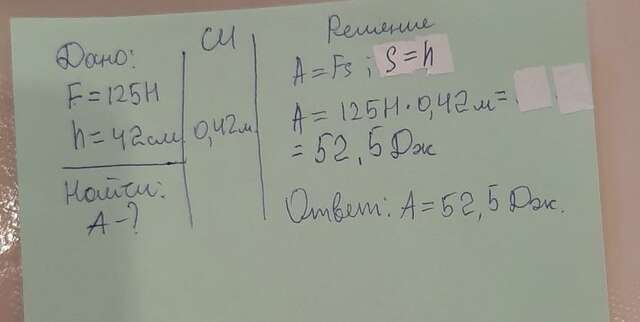 Дано:
F = 125Н
h = 42см
Найти:
A - ?
СИ
0,42м
Решение
A = Fs ; S = h
A = 125Н · 0,42м =
= 52,5 Дж
Ответ: A = 52,5 Дж.